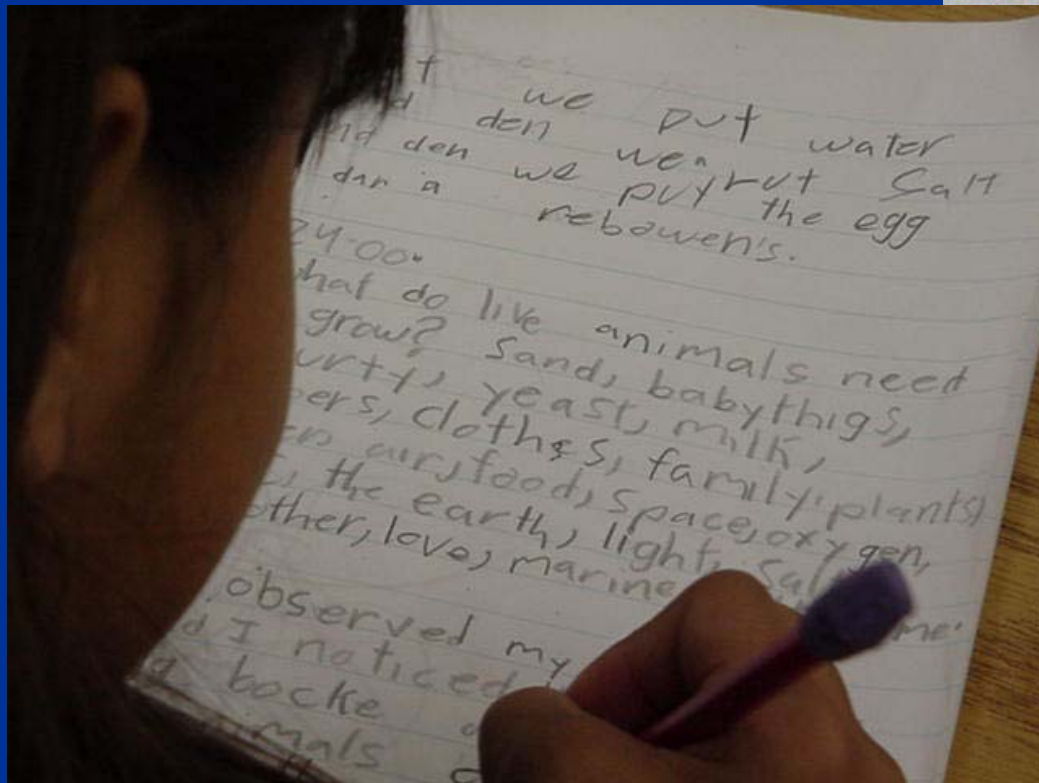 t we put water
d den wea rut Salt
nd den we put the egg
dan a rebowen's.
24.00.
hat do live animals need
grow? Sand, babythigs,
urty, yeast, milk,
pers, clothes, family, plants,
en air, food, space, oxygen,
, the earth, light, Sal
other, love, marine me.
observed my
d I noticed
a bocke
imals